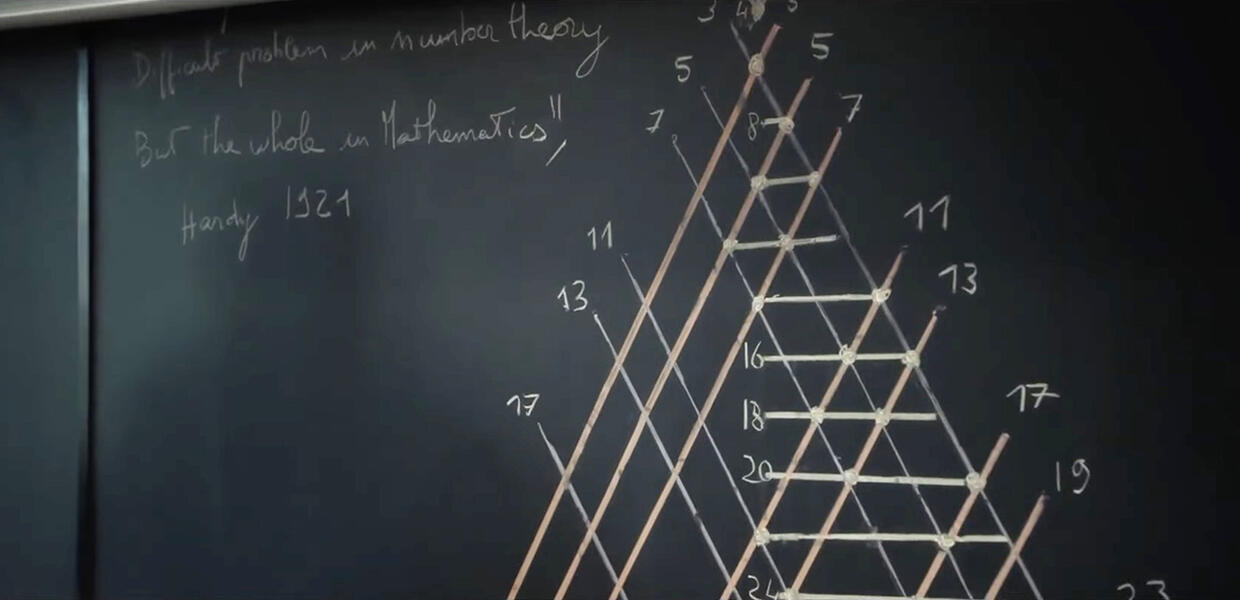 Difficult problem in number theory
But the whole in Mathematics",
Hardy 1921
3 4 3
5 5
7 8 7
11 11
13 13
16
17 18 17
20 19
24 23